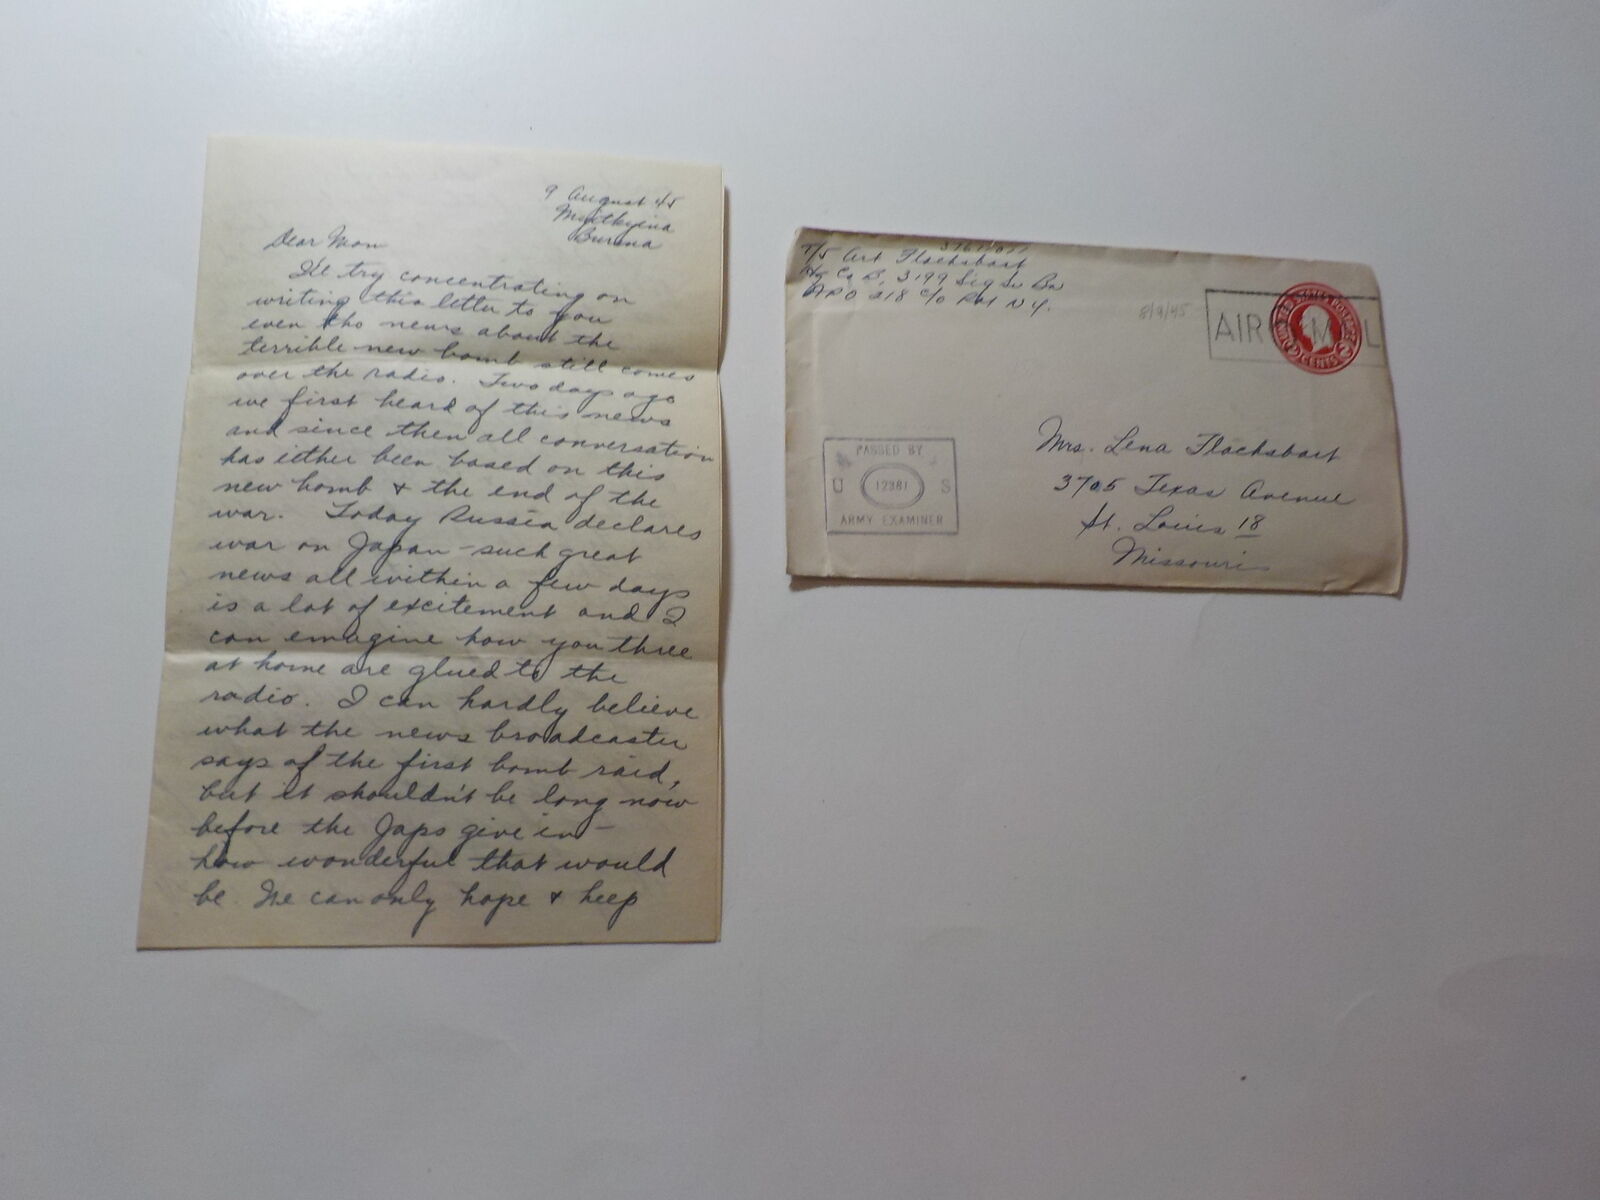 9 August 45
Myitkyina
Burma
Dear Mom
I'll try concentrating on
writing this letter to you
even tho news about the
terrible new bomb still comes
over the radio. Two days ago
we first heard of this news
and since then all conversation
has either been based on this
new bomb & the end of the
war. Today Russia declares
war on Japan - such great
news all within a few days
is a lot of excitement and I
can emagine how you three
at home are glued to the
radio. I can hardly believe
what the news broadcaster
says of the first bomb raid,
but it shouldn't be long now
before the Japs give in -
how wonderful that would
be. We can only hope & keep
T/5 Art Flachsbart
Hq Co B, 3199 Sig Sv Bn
APO 218 c/o PM N.Y.
8/9/45
AIR MAIL
UNITED STATES POSTAGE
2 CENTS 2
PASSED BY
U 12381 S
ARMY EXAMINER
Mrs. Lena Flachsbart
3705 Texas Avenue
St. Louis 18
Missouri